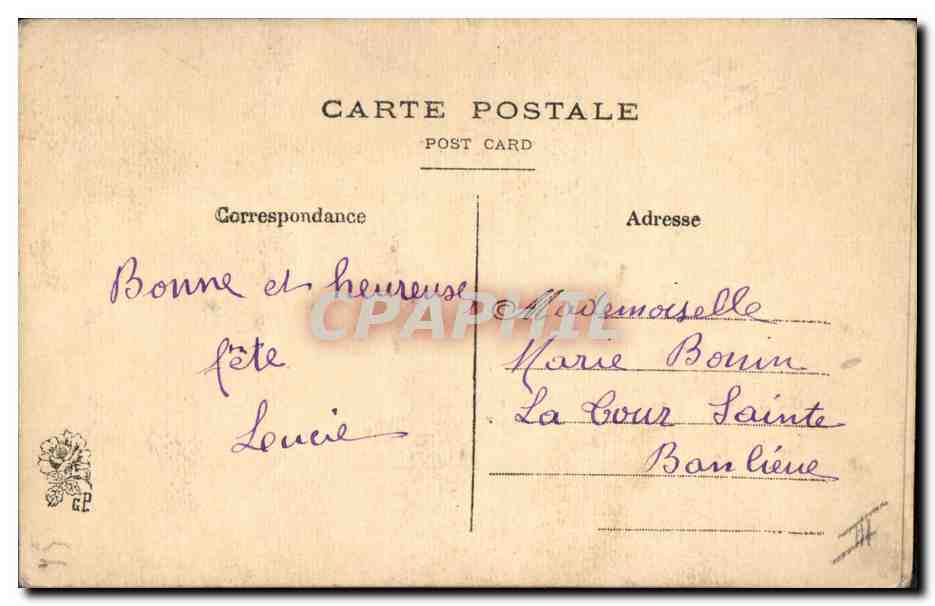 CARTE POSTALE
POST CARD
Correspondance
Bonne et heureuse
fête
Lucie
Adresse
Mademoiselle
Marie Bonin
La Cour Sainte
Banlieue
CPAPHIL
GP